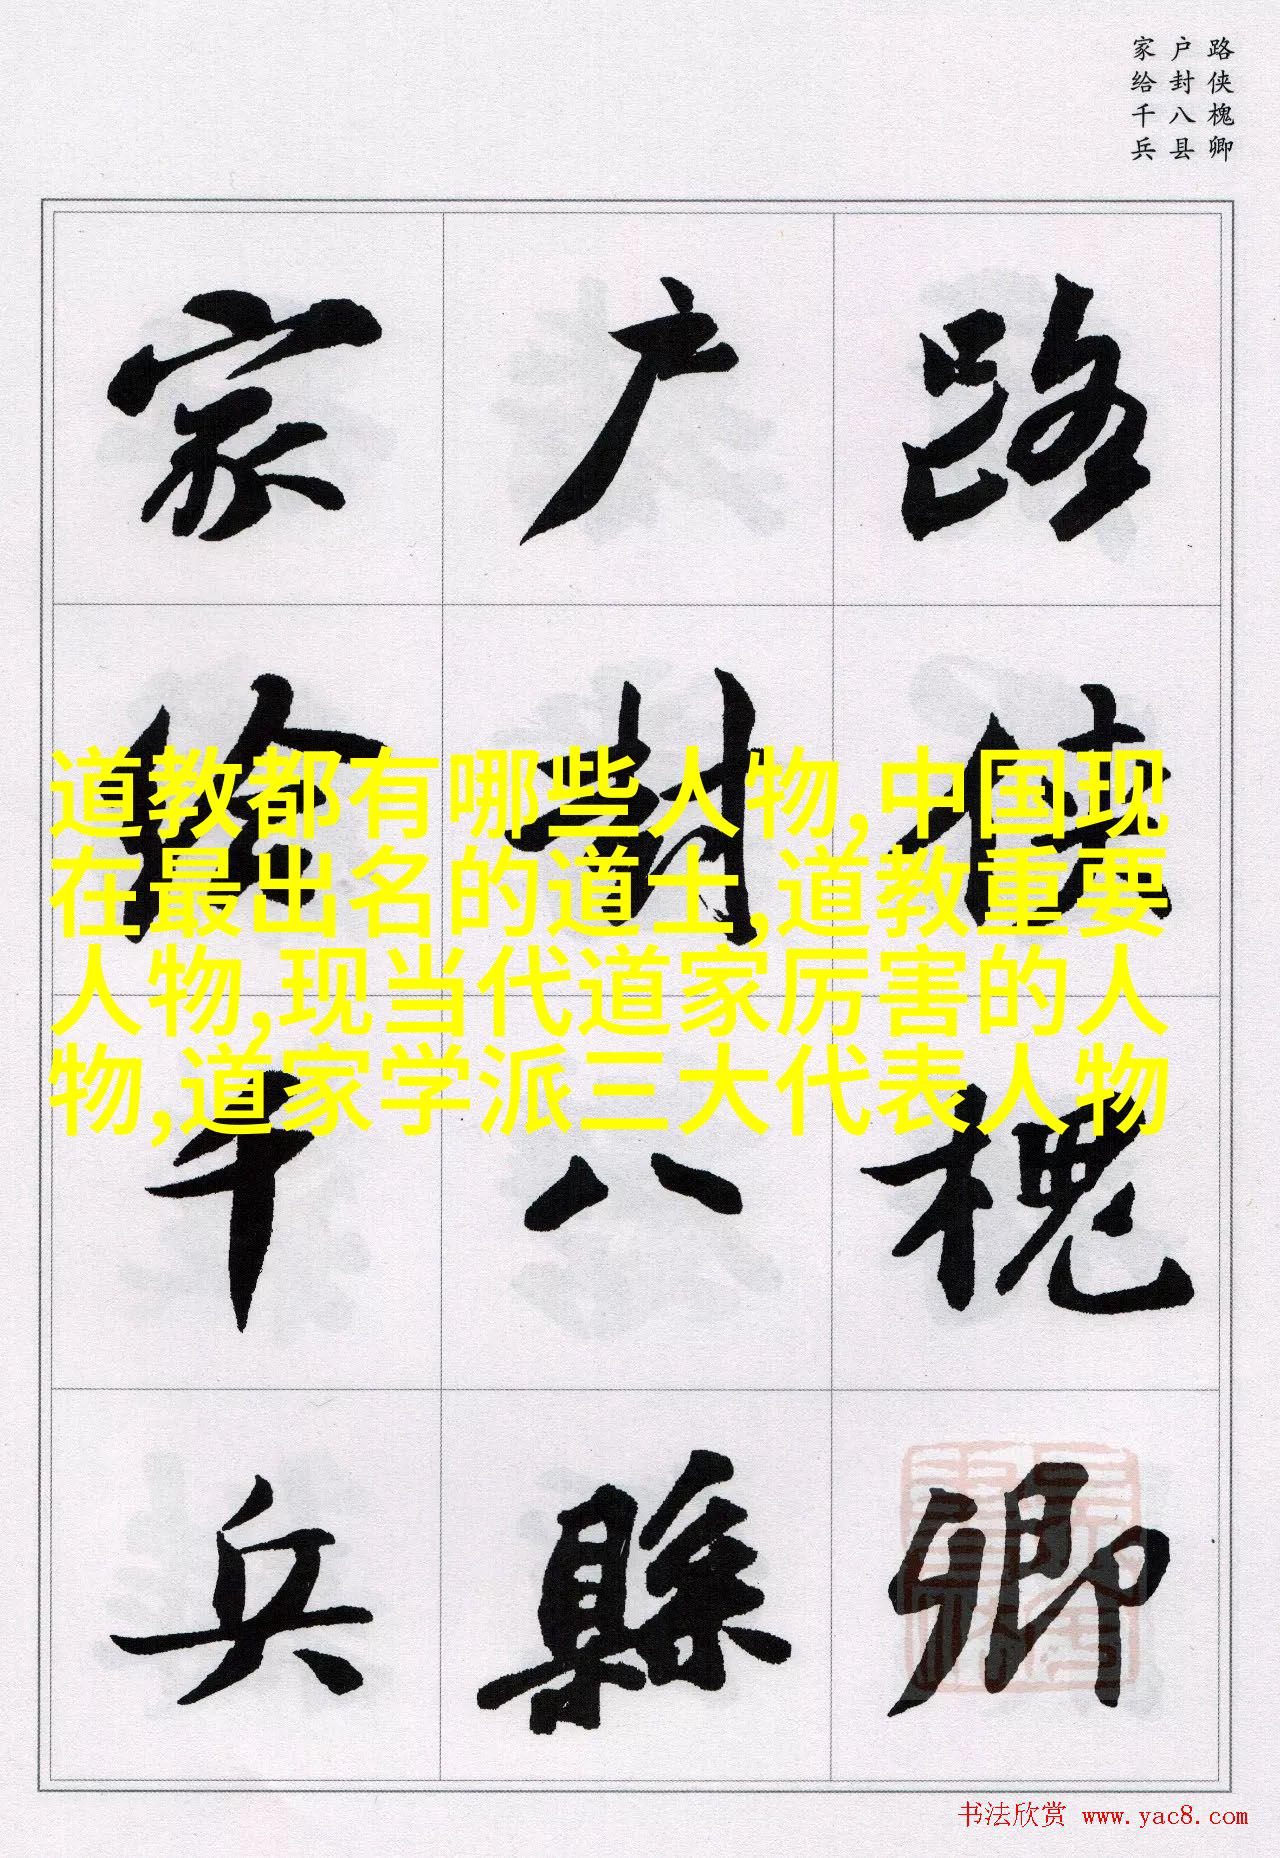 路侠槐卿
户封八县
家给千兵
路侠槐卿
户封八縣
家给千兵
道教都有哪些人物,中国现
在最出名的道士,道教重要
人物,现当代道家厉害的人
物,道家学派三大代表人物
书法欣赏 www.yac8.com